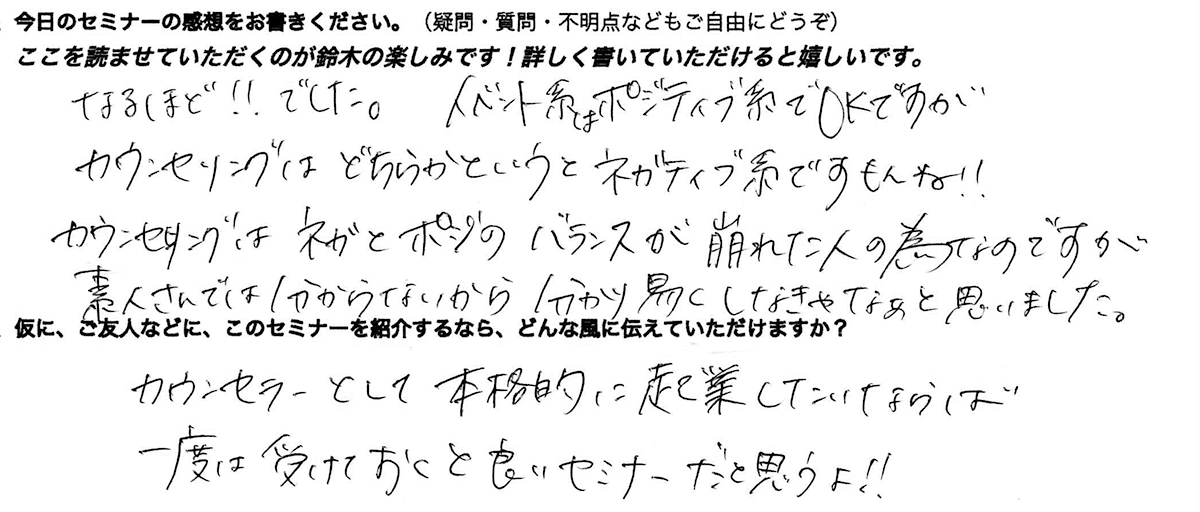 今日のセミナーの感想をお書きください。（疑問・質問・不明点などもご自由にどうぞ）
ここを読ませていただくのが鈴木の楽しみです！詳しく書いていただけると嬉しいです。
なるほど!!でした。 イベント系はポジティブ系でOKですが
カウンセリングはどちらかというとネガティブ系ですもんね!!
カウンセリングはネガとポジのバランスが崩れた人の為なのですが
素人さんでは分からないから分かり易くしなきゃなぁと思いました。
仮に、ご友人などに、このセミナーを紹介するなら、どんな風に伝えていただけますか？
カウンセラーとして本格的に起業したいならば
一度は受けておくと良いセミナーだと思うよ!!